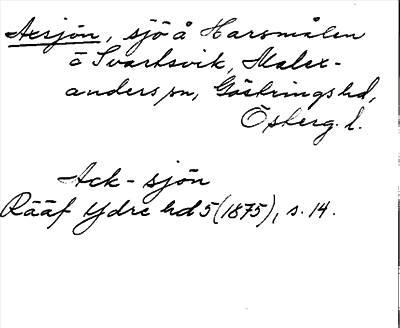 Acksjön, sjö å Harsmålen
o Svartsvik, Malex-
anders sn, Göstrings hd,
Österg. l.
Ack-sjön
Rääf Ydre hd 5 (1875), s. 14.